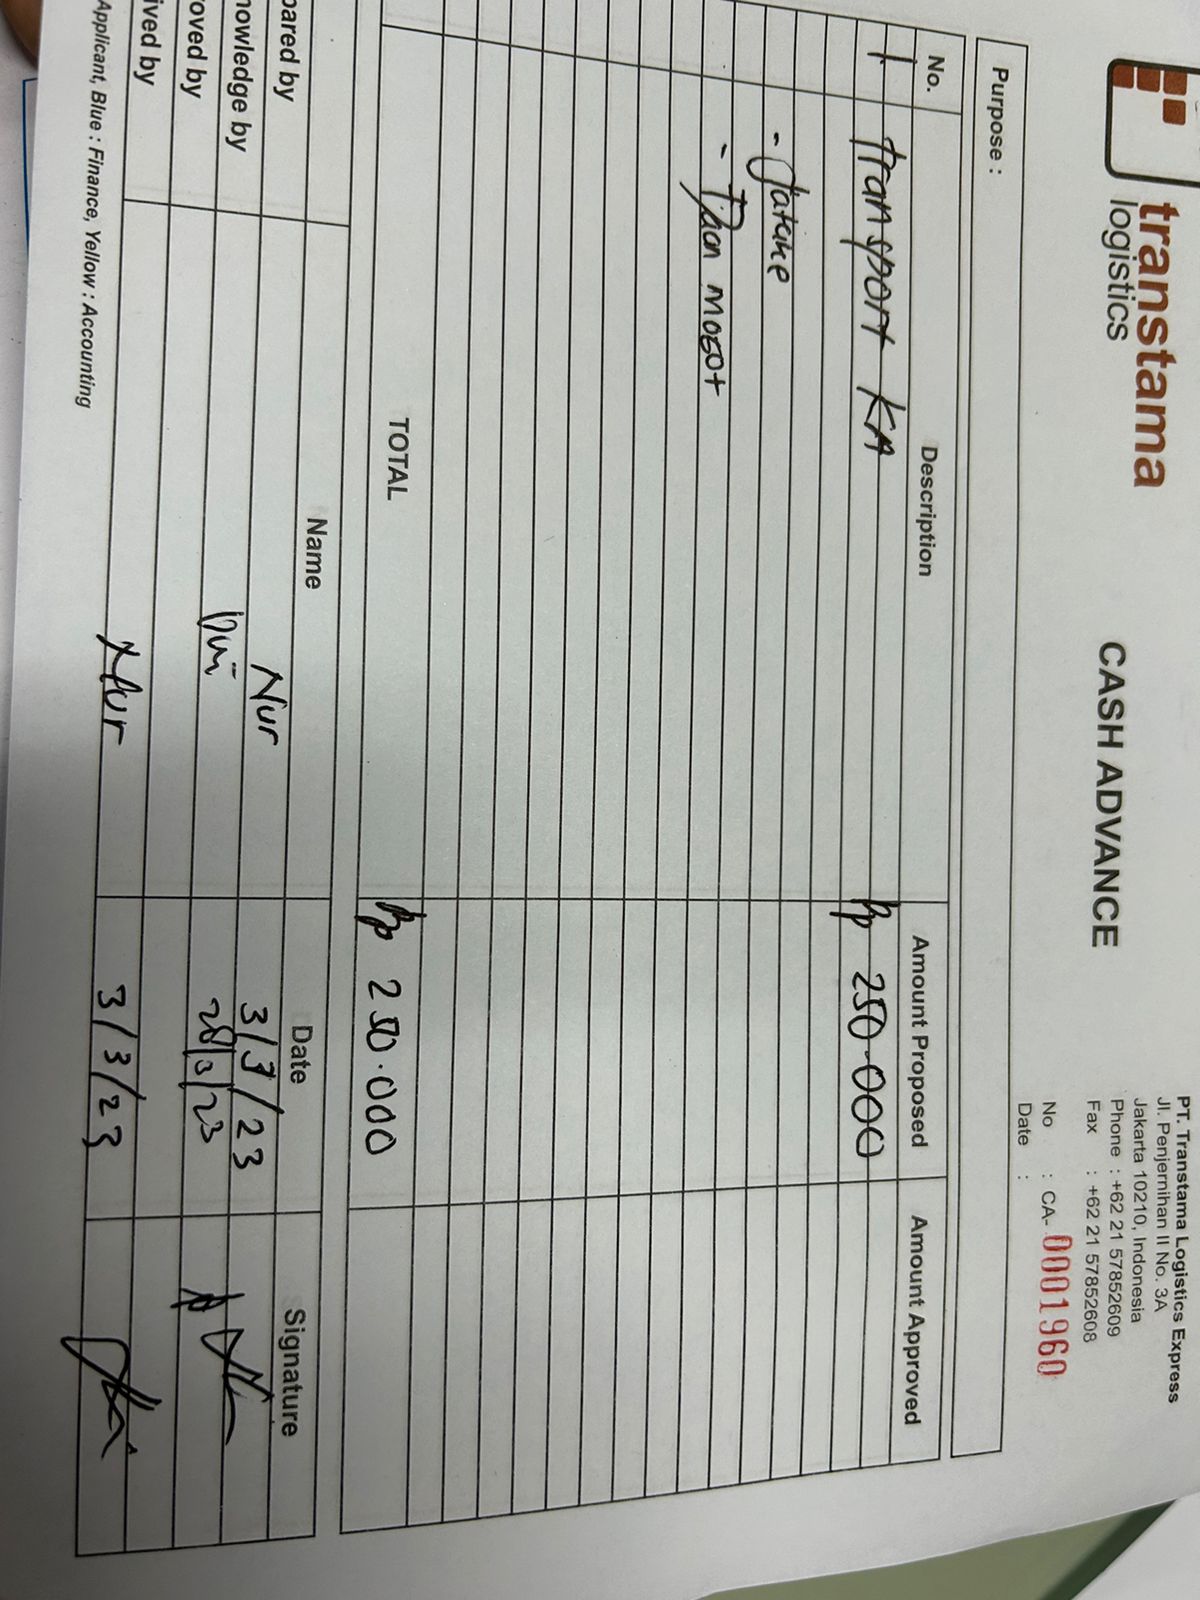 transtama
logistics
CASH ADVANCE
PT. Transtama Logistics Express
Jl. Penjernihan II No. 3A
Jakarta 10210, Indonesia
Phone : +62 21 57852609
Fax : +62 21 57852608
No : CA- 0001960
Date :
Purpose :
No. Description Amount Proposed Amount Approved
1 transport KA Rp 250.000
- Jatake
- Daan mogot
TOTAL Rp 250.000
Name Date Signature
pared by Nur 3/3/23
nowledge by Dwi 28/3/23
oved by
ived by Nur 3/3/23
Applicant, Blue : Finance, Yellow : Accounting